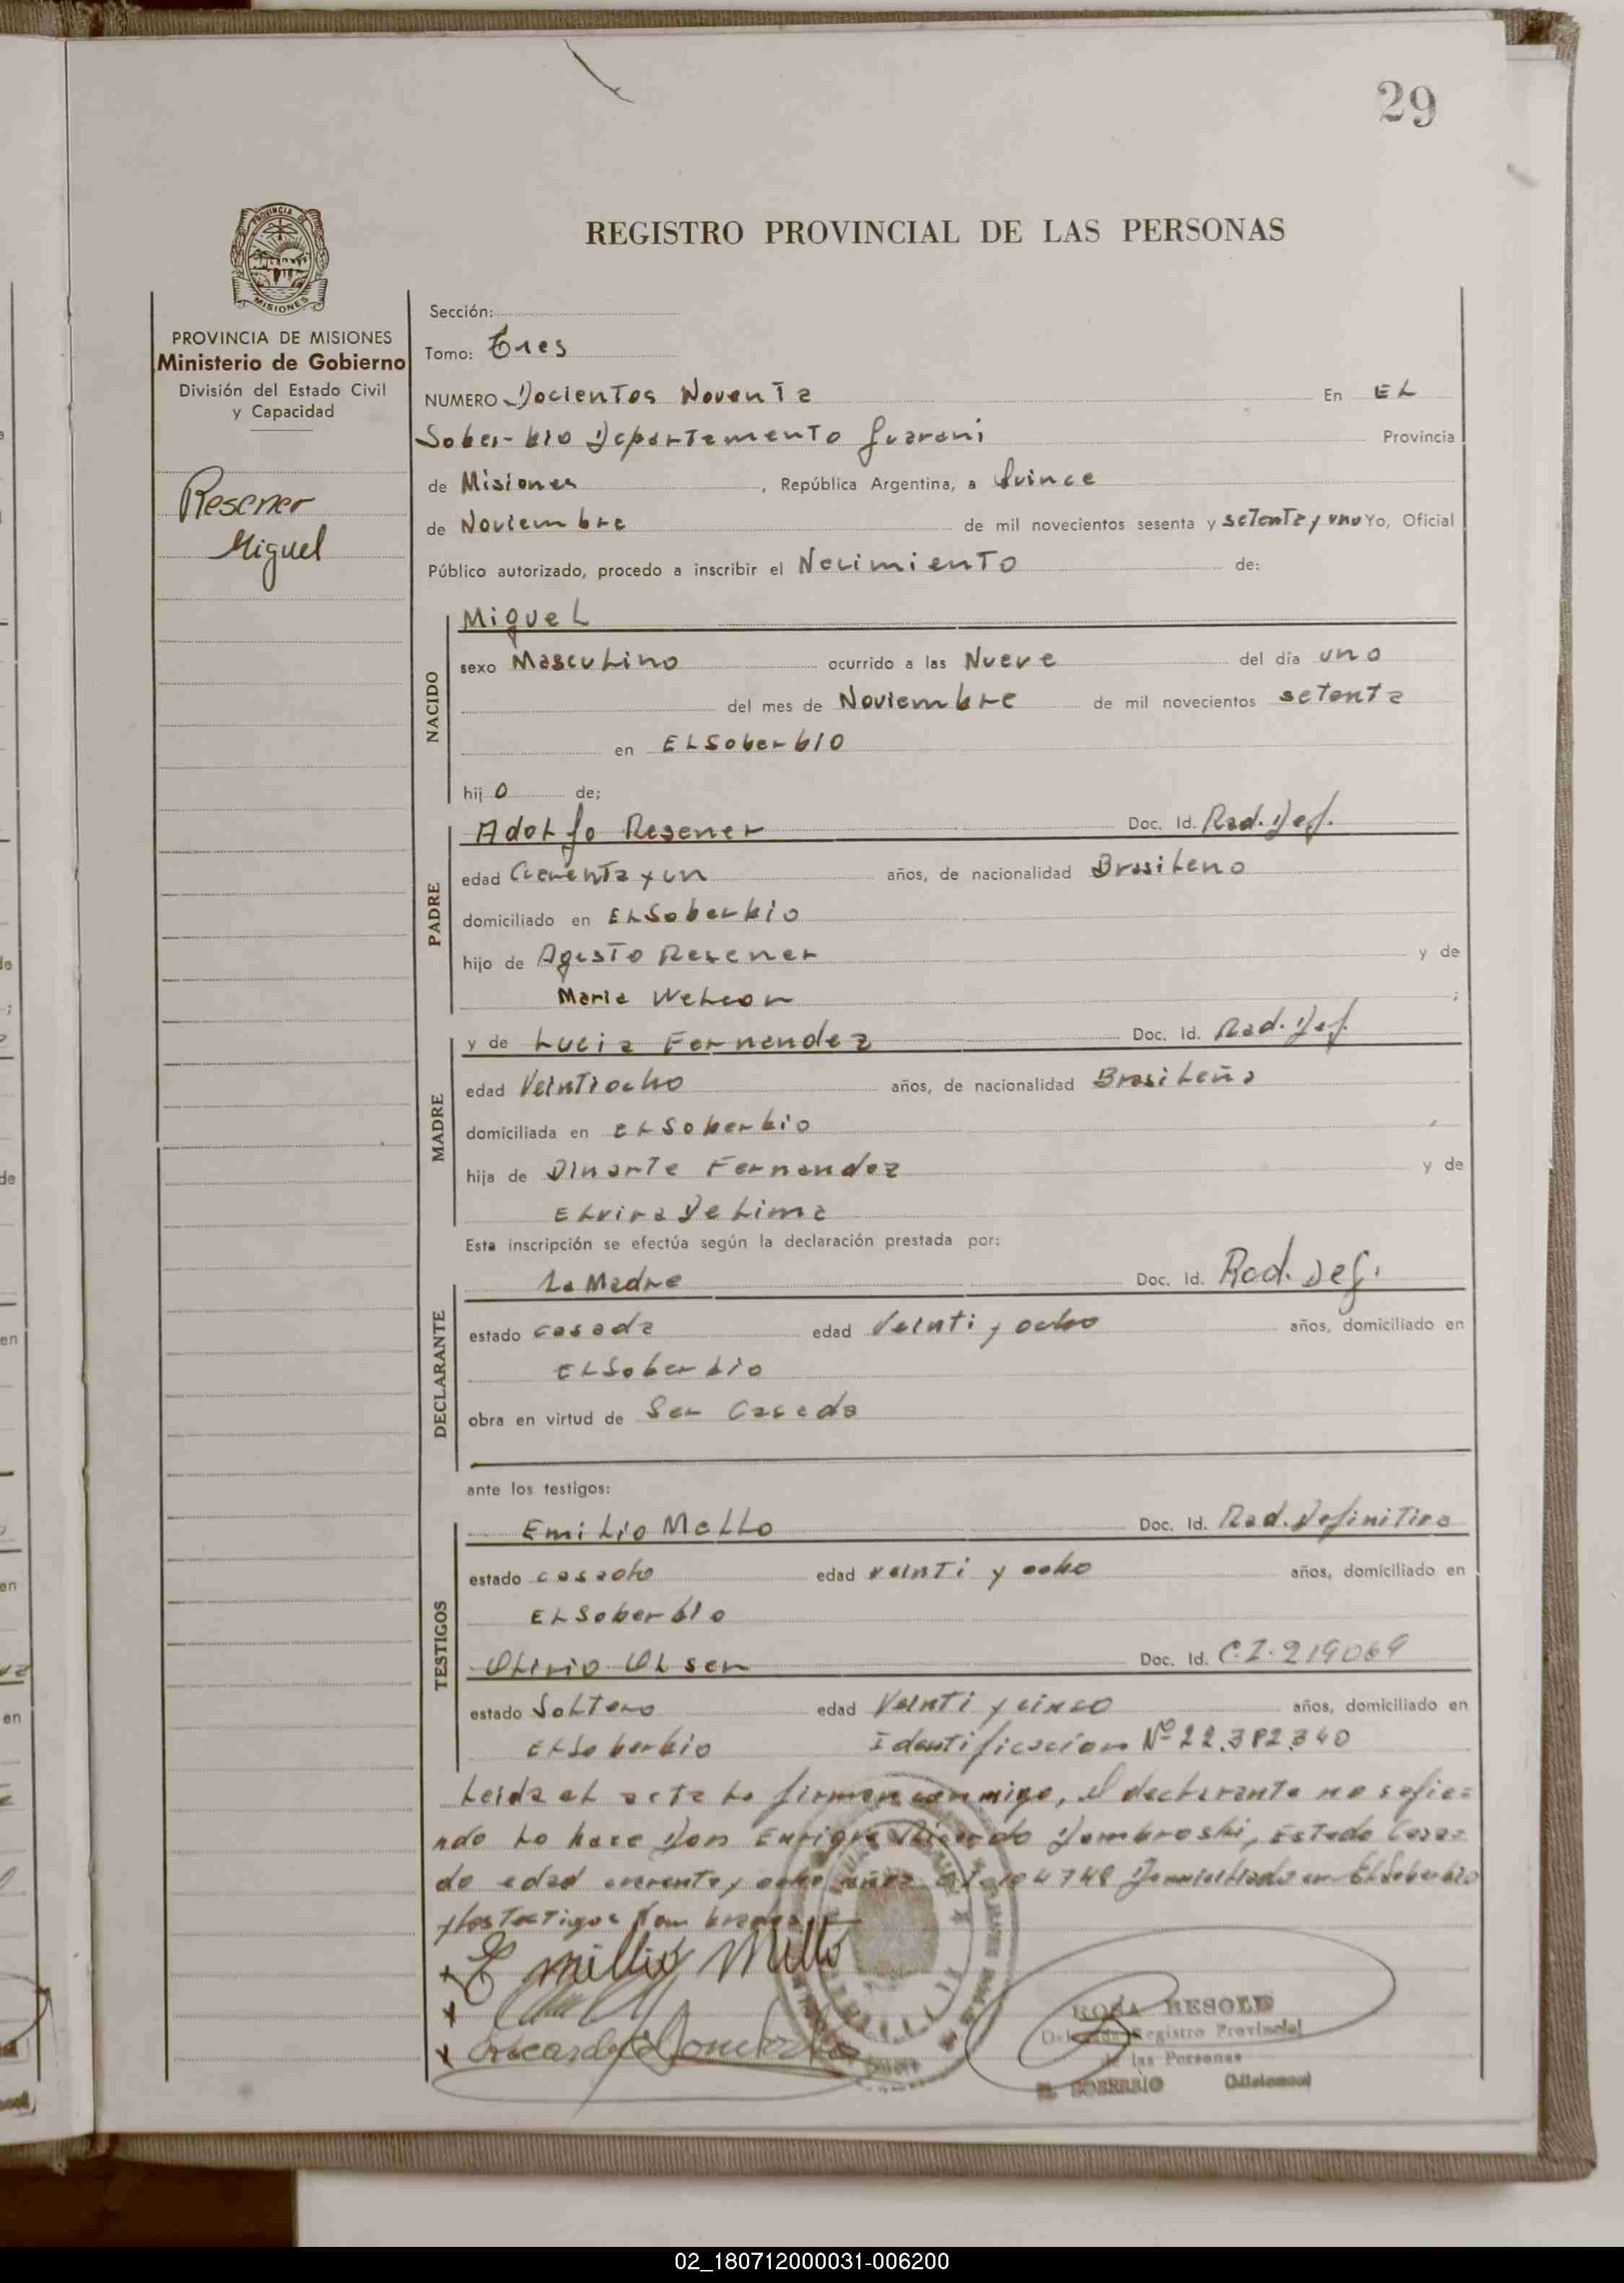 29
PROVINCIA DE
MISIONES
REGISTRO PROVINCIAL DE LAS PERSONAS
PROVINCIA DE MISIONES
Ministerio de Gobierno
División del Estado Civil
y Capacidad
Resener
Miguel
Sección:
Tomo: Tres
NUMERO Docientos Noventa En EL
Sober-bio Departamento Guarani Provincia
de Misiones, República Argentina, a Quince
de Noviembre de mil novecientos sesenta y setenta y uno Yo, Oficial
Público autorizado, procedo a inscribir el Necimiento de:
NACIDO
Miguel
sexo Masculino ocurrido a las Nueve del día uno
del mes de Noviembre de mil novecientos setenta
en EL Soberbio
hijo de;
PADRE
Adolfo Resener Doc. Id. Rad. Def.
edad Cuarenta y un años, de nacionalidad Brasileno
domiciliado en EL Soberbio
hijo de Agusto Resener y de
Maria ;
MADRE
y de Lucia Fernandez Doc. Id. Rad. Def.
edad Veintiocho años, de nacionalidad Brasileña
domiciliada en EL Soberbio
hija de Dinarte Fernandez y de
Elvira De Lima
Esta inscripción se efectúa según la declaración prestada por:
DECLARANTE
La Madre Doc. Id. Rad. Def.
estado casada edad Veinti y ocho años, domiciliado en
EL Soberbio
obra en virtud de Ser Casada
ante los testigos:
TESTIGOS
Emilio Mello Doc. Id. Rad. Definitiva
estado casado edad veinti y ocho años, domiciliado en
EL Soberbio
Olirio Olsen Doc. Id. C.I. 219069
estado Soltero edad Veinti y cinco años, domiciliado en
EL Soberbio Identificacion Nº 22.382.340
Leida el acta lo firman conmigo, el declarante no sufie=
ndo lo hace Don Enrique Ricardo Dombroski, Estado Casa=
do edad cuarenta y ocho años Domiciliado en El Soberbio
y los Testigos
Emillio Mello
Ricardo
ROSA RESOLD
Registro Provincial
de las Personas
EL SOBERBIO (Misiones)
02_180712000031-006200